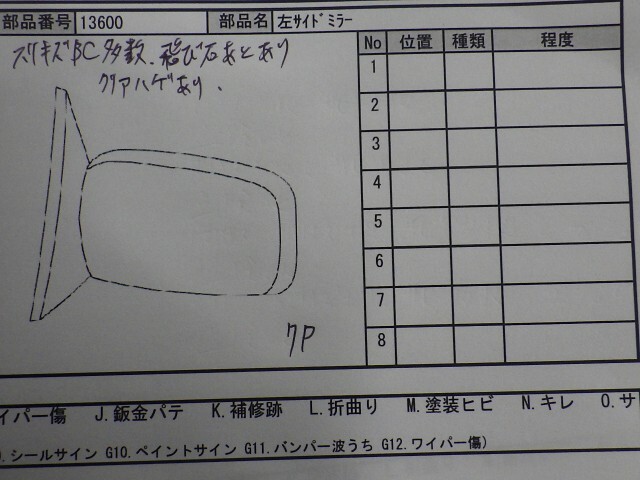 部品番号 13600 部品名 左ｻｲﾄﾞﾐﾗｰ
ズリキズBC多数、飛び石あとあり
クリアハゲあり.
No 位置 種類 程度
1
2
3
4
5
6
7
8
7P
イパー傷 J.鈑金パテ K.補修跡 L.折曲り M.塗装ヒビ N.キレ O.サ
.シールサイン G10.ペイントサイン G11.バンパー波うち G12.ワイパー傷)